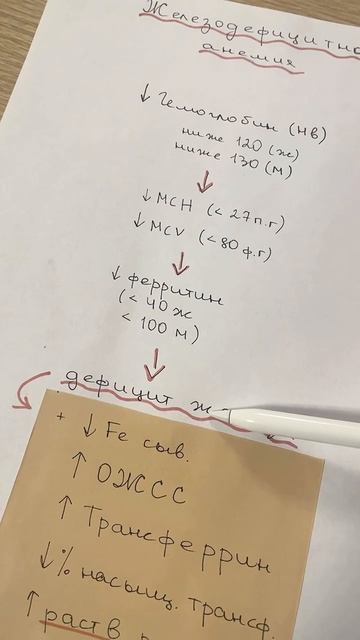 Железодефицитна
анемия
↓ Гемоглобин (НВ)
ниже 120 (ж)
ниже 130 (м)
↓ МСН (< 27 п.г)
↓ MCV (< 80 ф.г)
↓ ферритин
(< 40 ж
< 100 м)
дефицит ж
+ ↓ Fe сыв.
↑ ОЖСС
↑ Трансферрин
↓ % насыщ. трансф.
↑ раств